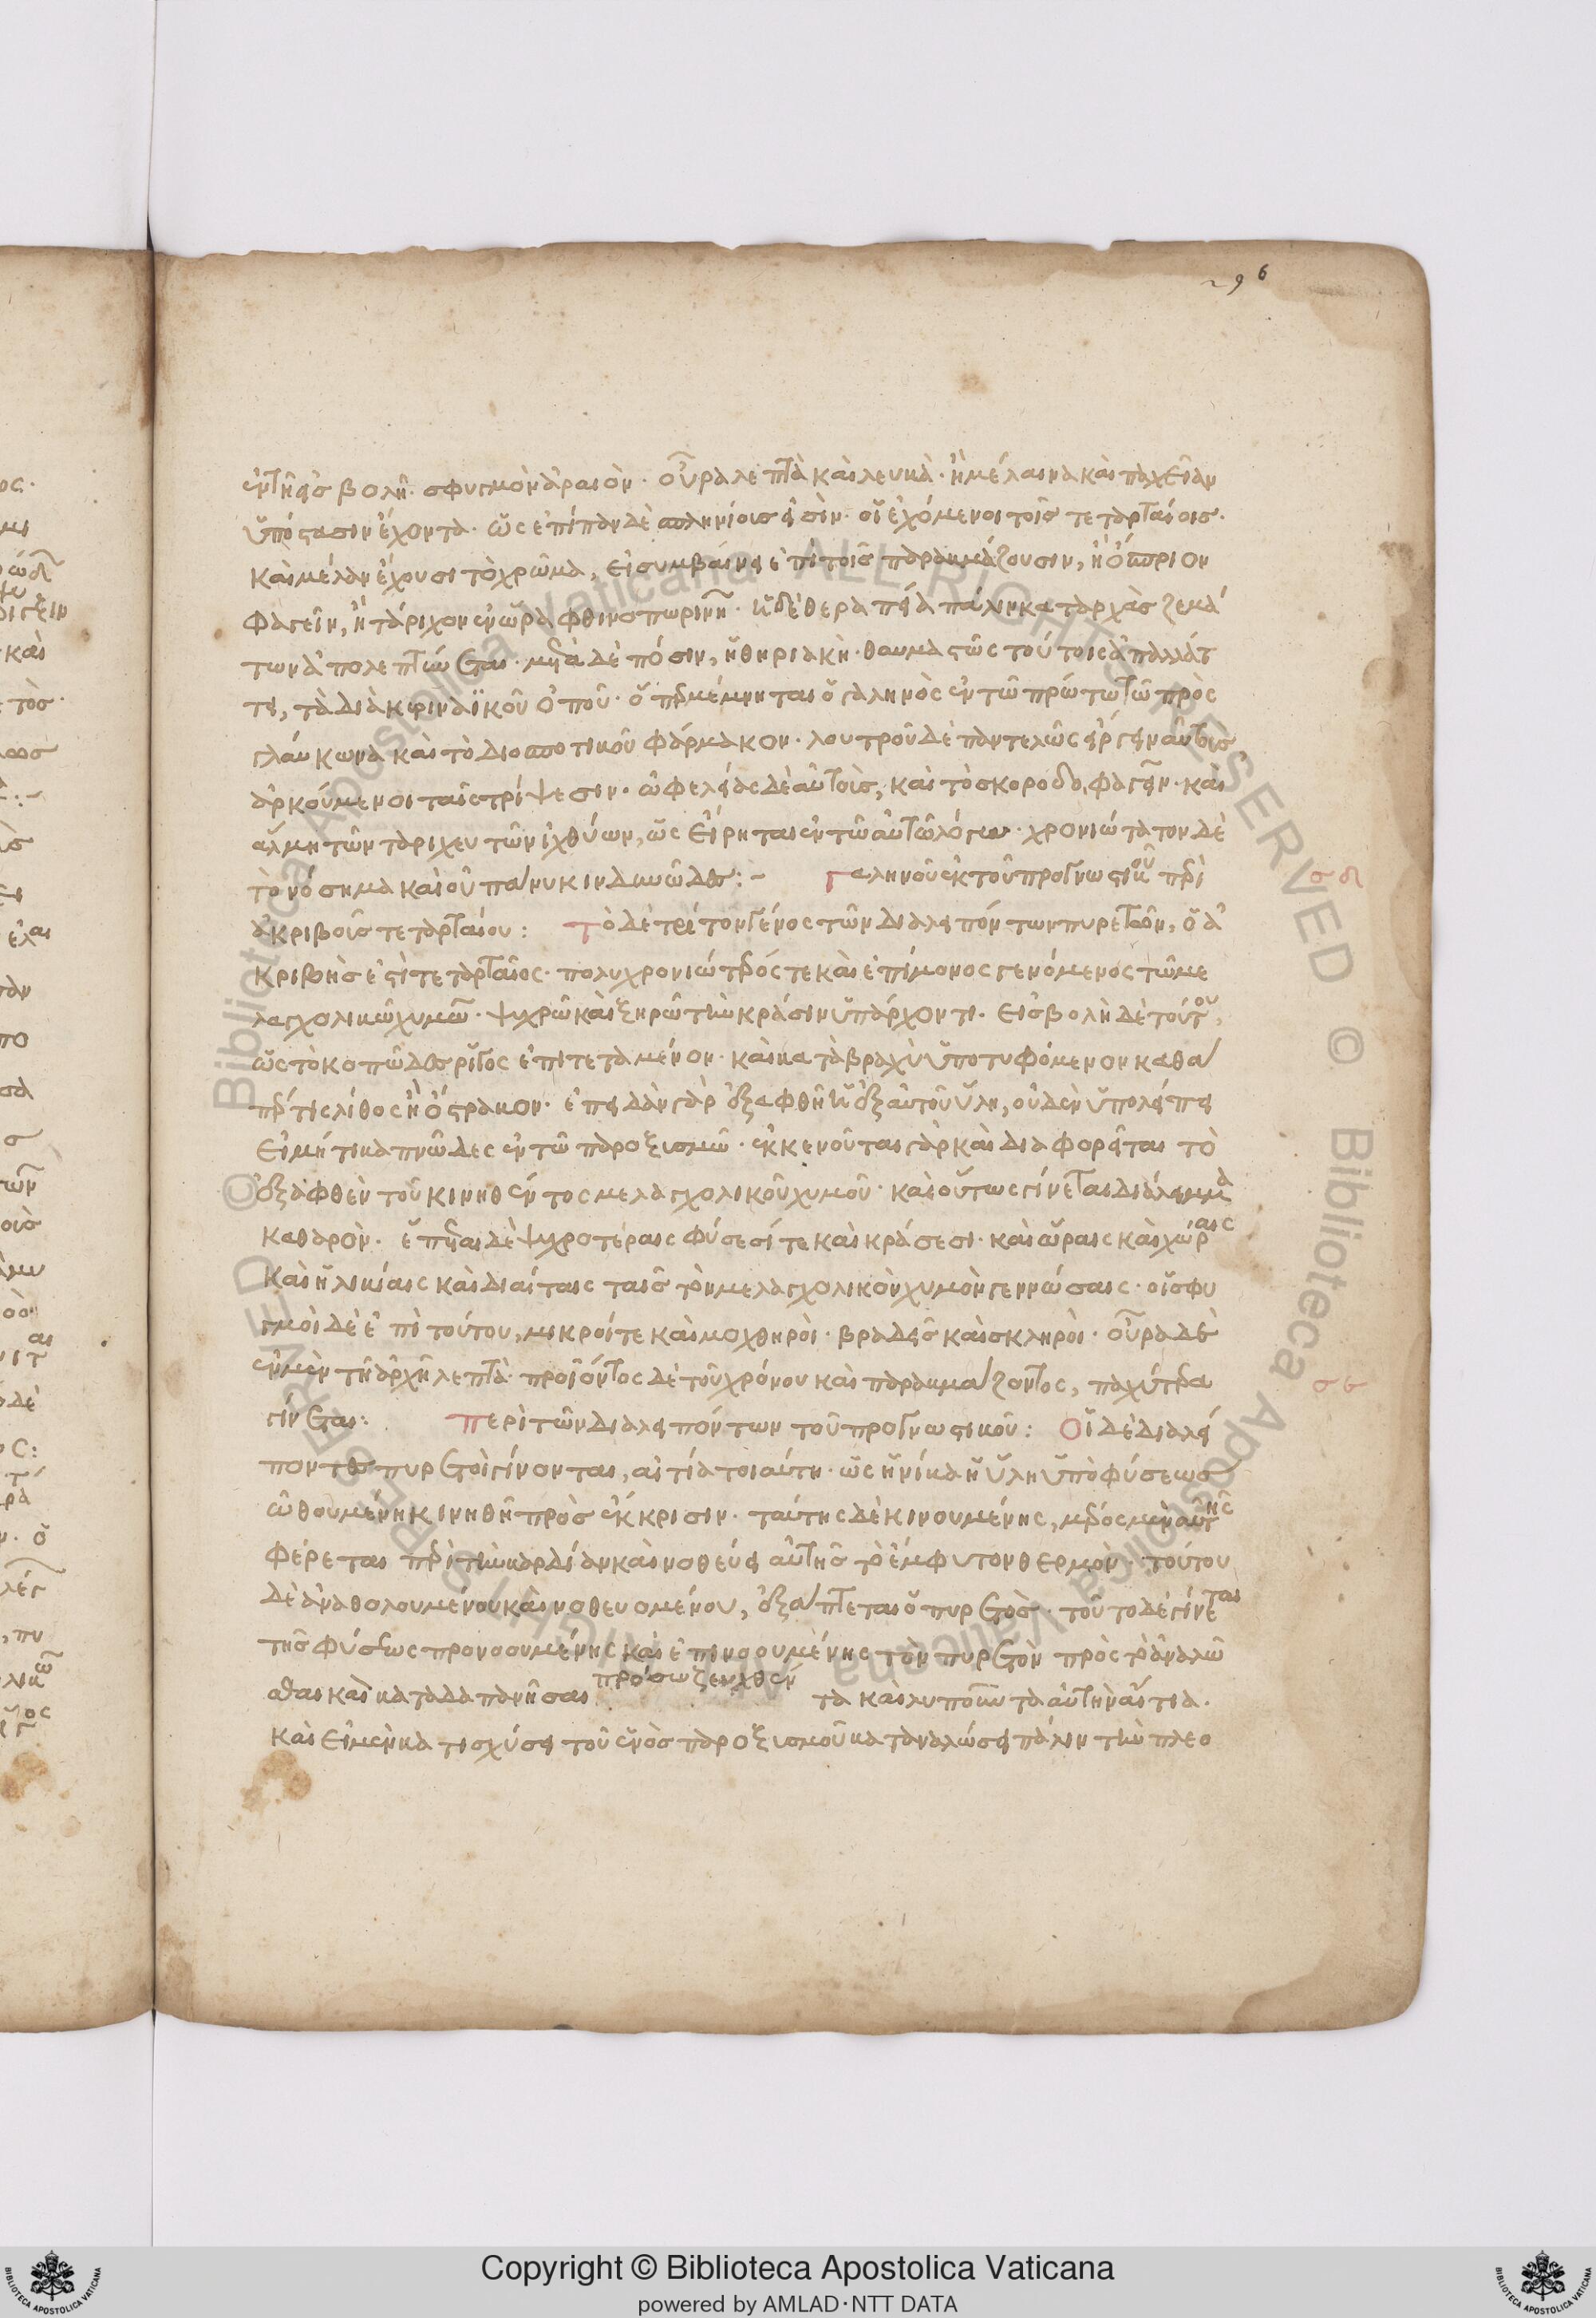 296
ἐν τῇ εἰσβολῇ. σφυγμὸν ἀραιόν. οὖρα λεπτὰ καὶ λευκά. ἢ μέλαινα καὶ παχεῖαν
ὑπόστασιν ἔχοντα. ὡς ἐπίπαν δὲ σπληνίοις εἰσὶν. οἱ ἐχόμενοι τοῖς τεταρταίοις.
καὶ μέλαν ἔχουσι τὸ χρῶμα, εἰ συμβαίνει ἐπὶ τοῖς παρακμάζουσιν, ἢ ὄσπριον
φαγεῖν, ἢ τάριχον ἐν ὥρα φθινοπωρινῆ. ἡ δὲ θεραπεία πάλιν καταρχὰς ζεμά
των ἀπολεπτύνεται. μετὰ δὲ πόσιν, ἡ θηριακὴ. θαυμαστῶς τούτοις ἀπαλλάτ
τει, τὰ διὰ κυριναϊκοῦ ὀποῦ. οὗ περ μέμνηται ὁ γαληνὸς ἐν τῶ πρώτω τῶ πρὸς
γλαύκωνα καὶ τὸ διοσποτικοῦ φάρμακον. λουτροῦ δὲ παντελῶς εἴργειν αὐτοὺς
ἀρκούμενοι ταῖς τρίψεσιν. ὠφελήσει δὲ αὐτοῖς, καὶ τὸ σκοροδοφαγεῖν. καὶ
ἅλμη τῶν ταριχευτῶν ἰχθύων, ὡς εἴρηται ἐν τῶ αὐτῶ λόγω. χρονιώτατον δὲ
τὸ νόσημα καὶ οὐ πάνυ κινδυνῶδες:- Γαληνοῦ ἐκ τοῦ προγνωστικοῦ περὶ
ἀκριβοῖς τεταρταίου: Τὸ δὲ τρίτον γένος τῶν διαλειπόντων πυρετῶν, ὁ ἀ
κριβής ἐστὶ τεταρταῖος. πολυχρονιώτερός τε καὶ ἐπίμονος γενόμενος τῶ με
λαγχολικῶ χυμῶ. ψυχρῶ καὶ ξηρῶ τὴν κρᾶσιν ὑπάρχοντι. εἰσβολὴ δὲ τούτου,
ὡς τὸ κοπῶδες ρῖγος ἐπιτεταμένον. καὶ κατὰ βραχὺ ὑποτυφόμενον καθά
περ τις λίθος ἢ ὄστρακον. ἐπειδὰν γὰρ ἐξαφθῆ ἡ ἐξ αὐτοῦ ὕλη, οὐδὲν ὑπολείπει
εἰ μή τι καπνῶδες ἐν τῶ παροξισμῶ. ἐκκενοῦται γὰρ καὶ διαφορεῖται τὸ
ἐξαφθὲν τοῦ κινηθέντος μελαγχολικοῦ χυμοῦ. καὶ οὕτως γίνεται διάλειμμα
καθαρόν. ἕπεται δὲ ψυχροτέραις φύσεσί τε καὶ κράσεσι. καὶ ὥραις καὶ χώραις
καὶ ἡλικίαις καὶ διαίταις ταῖς τὸν μελαγχολικὸν χυμὸν γεννώσαις. οἱ σφυ
γμοὶ δὲ ἐπὶ τούτου, μικροί τε καὶ μοχθηροὶ. βραδεῖς καὶ σκληροὶ. οὖρα δὲ
ἐν μὲν τῆ ἀρχῆ λεπτὰ. προϊόντος δὲ τοῦ χρόνου καὶ παρακμάζοντος, παχύτερα
γίνεται: Περὶ τῶν διαλειπόντων τοῦ προγνωστικοῦ: Οἱ δὲ διαλεί
ποντες πυρετοὶ γίνονται, αἰτία τοιαύτη. ὡς ἡνίκα ἡ ὕλη ὑπὸ φύσεως
ὠθουμένη κινηθῆ πρὸς ἔκκρισιν. ταύτης δὲ κινουμένης, μέρος μὲν αὐτῆς
φέρεται περὶ τὴν καρδίαν καὶ νοθεύει αὐτῆς τὸ ἔμφυτον θερμὸν. τούτου
δὲ ἀναθολουμένου καὶ νοθευομένου, ἐξάπτεται ὁ πυρετὸς. τοῦτο δὲ γίνεται
τῆς φύσεως προνοουμένης καὶ ἐπινοουμένης τὸν πυρετὸν πρὸς τὸ ἀναλῶ
σαι καὶ καταδαπανῆσαι προσωζευχθέντα καὶ λυποῦντα αὐτὴν αἴτια.
καὶ εἰ μὲν κατισχύσει τοῦ ἑνὸς παροξισμοῦ καταναλώσει πάλιν τὴν πλεο
σδ
σε
Copyright © Biblioteca Apostolica Vaticana
powered by AMLAD·NTT DATA